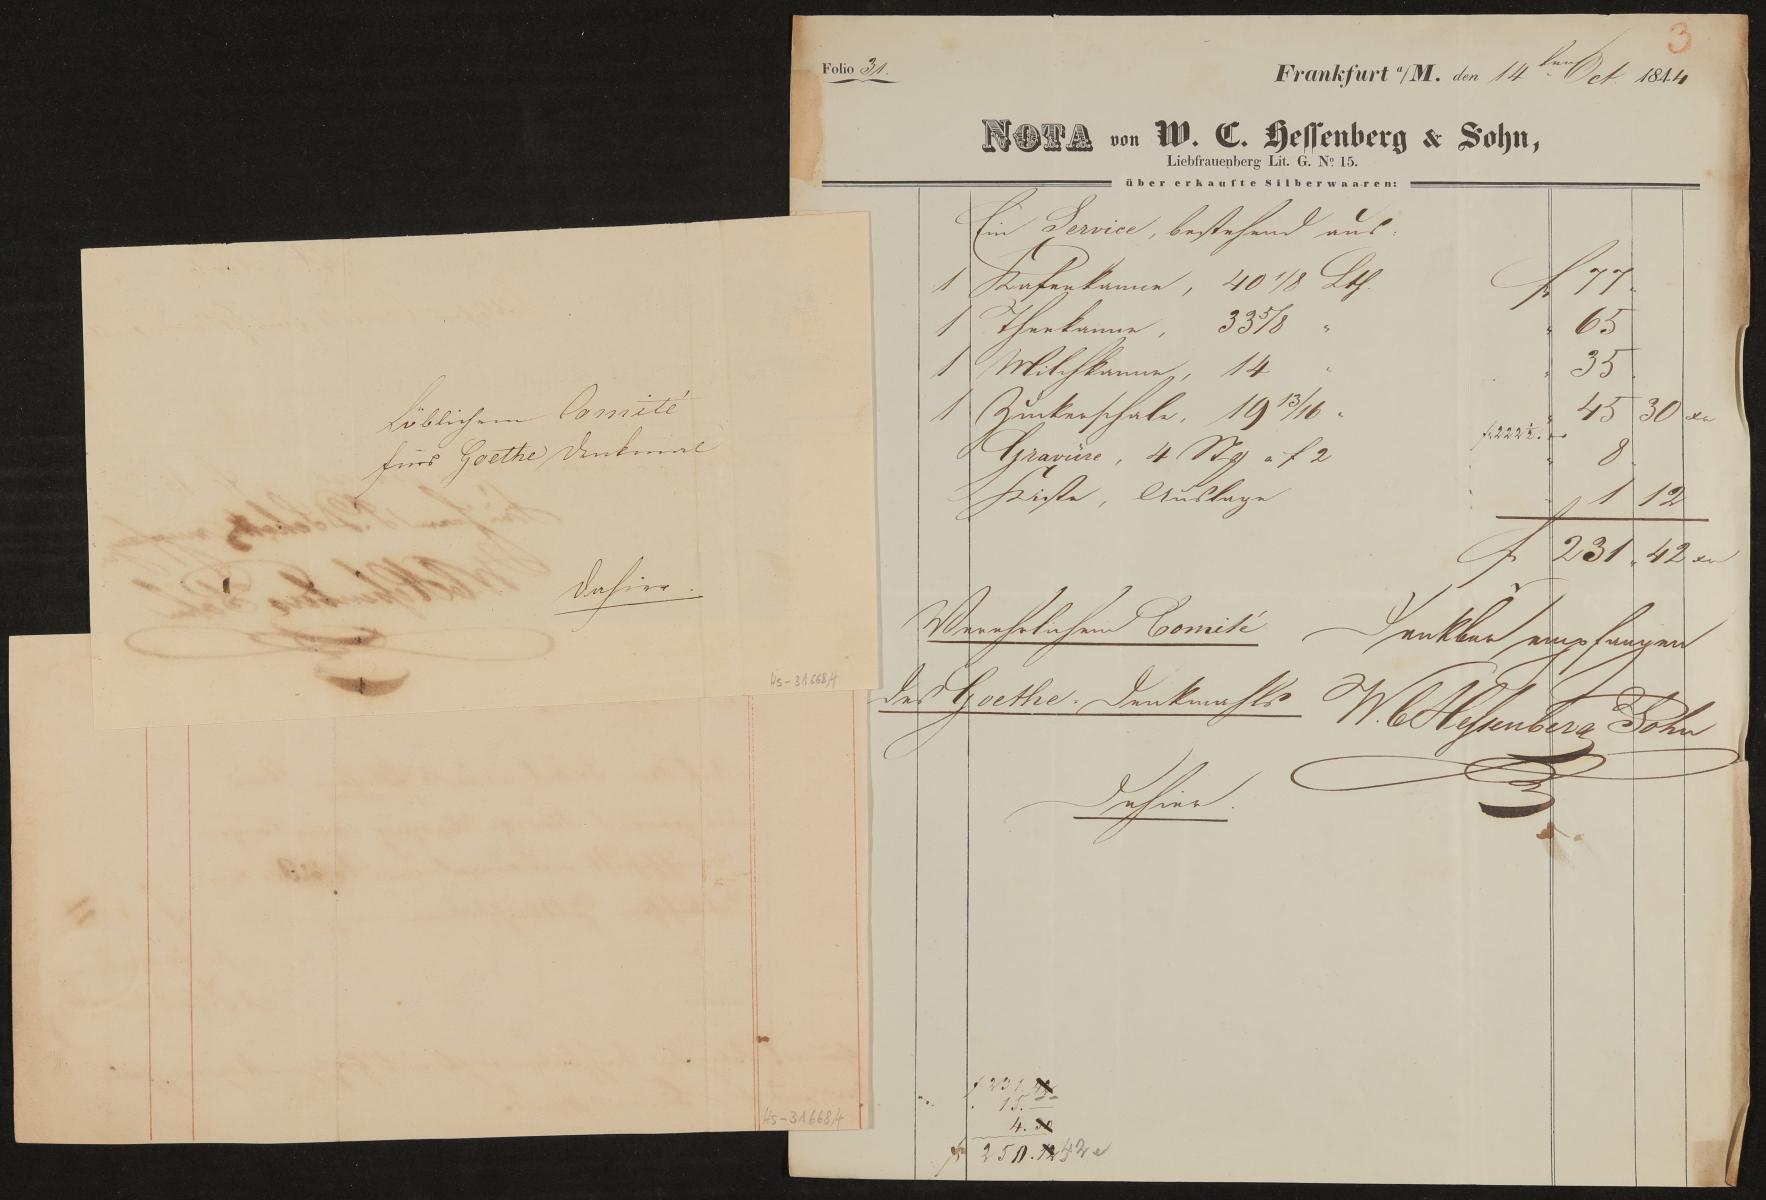 3
Folio 31.
Frankfurt a/M. den 14ten Oct. 1844
NOTA von W. C. Hessenberg & Sohn,
Liebfrauenberg Lit. G. No 15.
über erkaufte Silberwaaren:
Ein Service, bestehend aus:
1 Kafeekanne, 40 1/8 Lth. f 77 "
1 Theekanne, 33 5/8 " " 65
1 Milchkanne, 14 " " 35.
1 Zuckerschale, 19 13/16 " " 45 30 xr
f. 222 1/2.
Gravüre, 4 Stg a f 2 " 8.
Kiste, Auslage 1 12
f 231. 42 xr
Verehrlichem Comité
des Goethe-Denkmahls
Dahier.
Dankbar empfangen
W. C. Hessenberg & Sohn
f 231.
15. —
4.
f 250. 42
Löblichem Comité
fürs Goethe Denkmal
dahier.
Hs-31668,4
Hs-31668,4